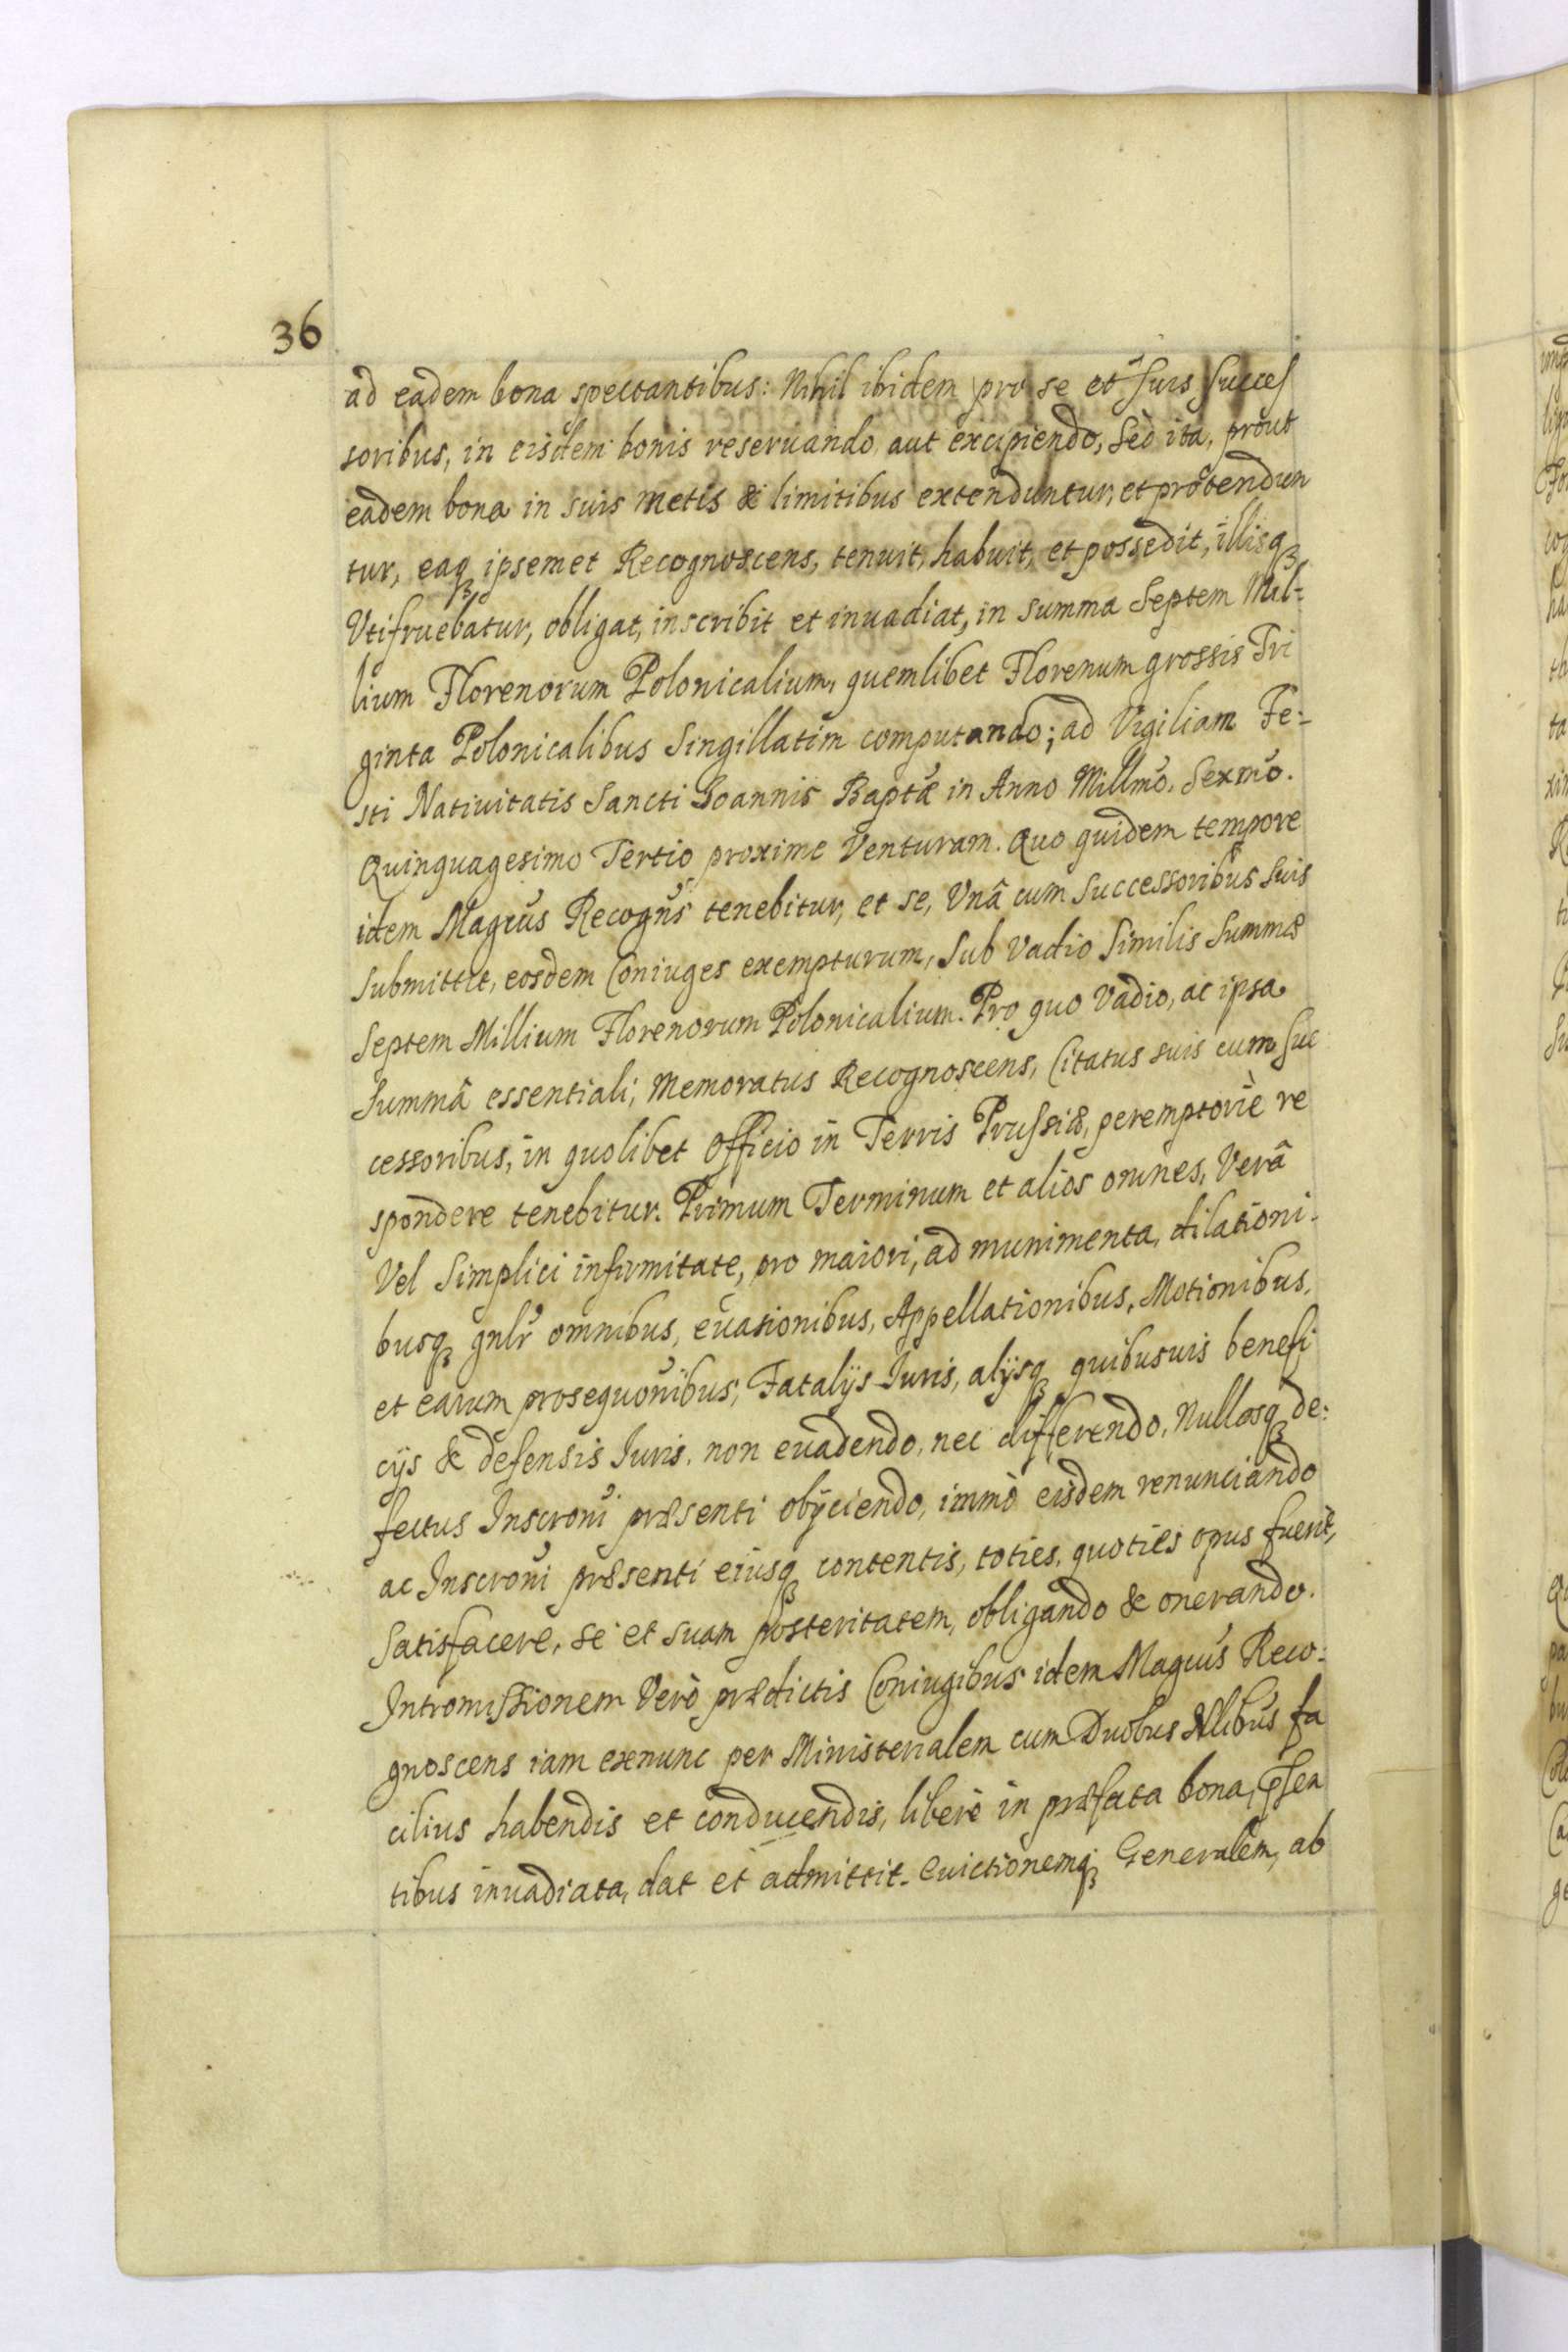 36
ad eadem bona spectantibus: Nihil ibidem pro se et suis succes
soribus, in eisdem bonis reseruando aut excipiendo, sed ita, prout
eadem bona in suis metis & limitibus extenduntur, et protendun
tur, eaqꝫ ipsemet Recognoscens, tenuit, habuit, et possedit, illisqꝫ
Vtifruebatur, obligat, inscribit et inuadiat, in summa Septem Mil-
lium Florenorum Polonicalium, quemlibet Florenum grossis Tri
ginta Polonicalibus Singillatim computando; ad Vigiliam Fe:
sti Natiuitatis Sancti Ioannis Baptæ in Anno Millmo. Sexmo.
Quinquagesimo Tertio proxime Venturam. Quo quidem tempore
idem Magcus Recogns tenebitur, et se, Vnâ cum Successoribus suis
submittit, eosdem Coniuges exempturum, Sub Vadio Similis Summæ
Septem Millium Florenorum Polonicalium. Pro quo Vadio, ac ipsa
Summâ essentiali, Memoratus Recognoscens, Citatus suis cum suc
cessoribus, in quolibet Officio in Terris Prussiæ, peremptoriè re
spondere tenebitur. Primum Terminum et alios omnes, Verâ
Vel Simplici infirmitate, pro maiori, ad munimenta, dilationi-
busqꝫ gnlr omnibus, euasionibus, Appellationibus, Motionibus,
et earum prosequonibus, Fatalijs Iuris, alijsqꝫ quibusuis benefi
cijs & defensis Iuris, non euadendo, nec differendo, Nullosqꝫ de:
fectus Inscroni præsenti obijciendo, immò eisdem renunciando
ac Inscroni præsenti eiusqꝫ contentis, toties, quoties opus fuerit,
Satisfacere, se et suam posteritatem, obligando & onerando.
Intromissionem Verò prædictis Coniugibus idem Magcus Reco:
gnoscens iam exnunc per Ministerialem cum Duobus Nlibus fa
cilius habendis et conducendis, liberè in præfata bona, psen
tibus inuadiata, dat et admittit. Euictionemqꝫ Generalem, ab